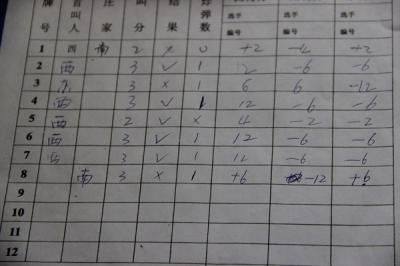 牌号 首叫人 庄家 叫分 结果 炸弹数 选手编号 选手编号 选手编号
1 西 南 2 × 0 +2 -4 +2
2 西 3 √ 1 2 -6 -6
3 东 3 × 1 6 6 -12
4 西 3 √ 1 12 -6 -6
5 西 2 √ × 4 -2 -2
6 西 3 √ 1 12 -6 -6
7 3 √ 1 12 -6 -6
8 南 3 × 1 +6 -12 +6
9
10
11
12